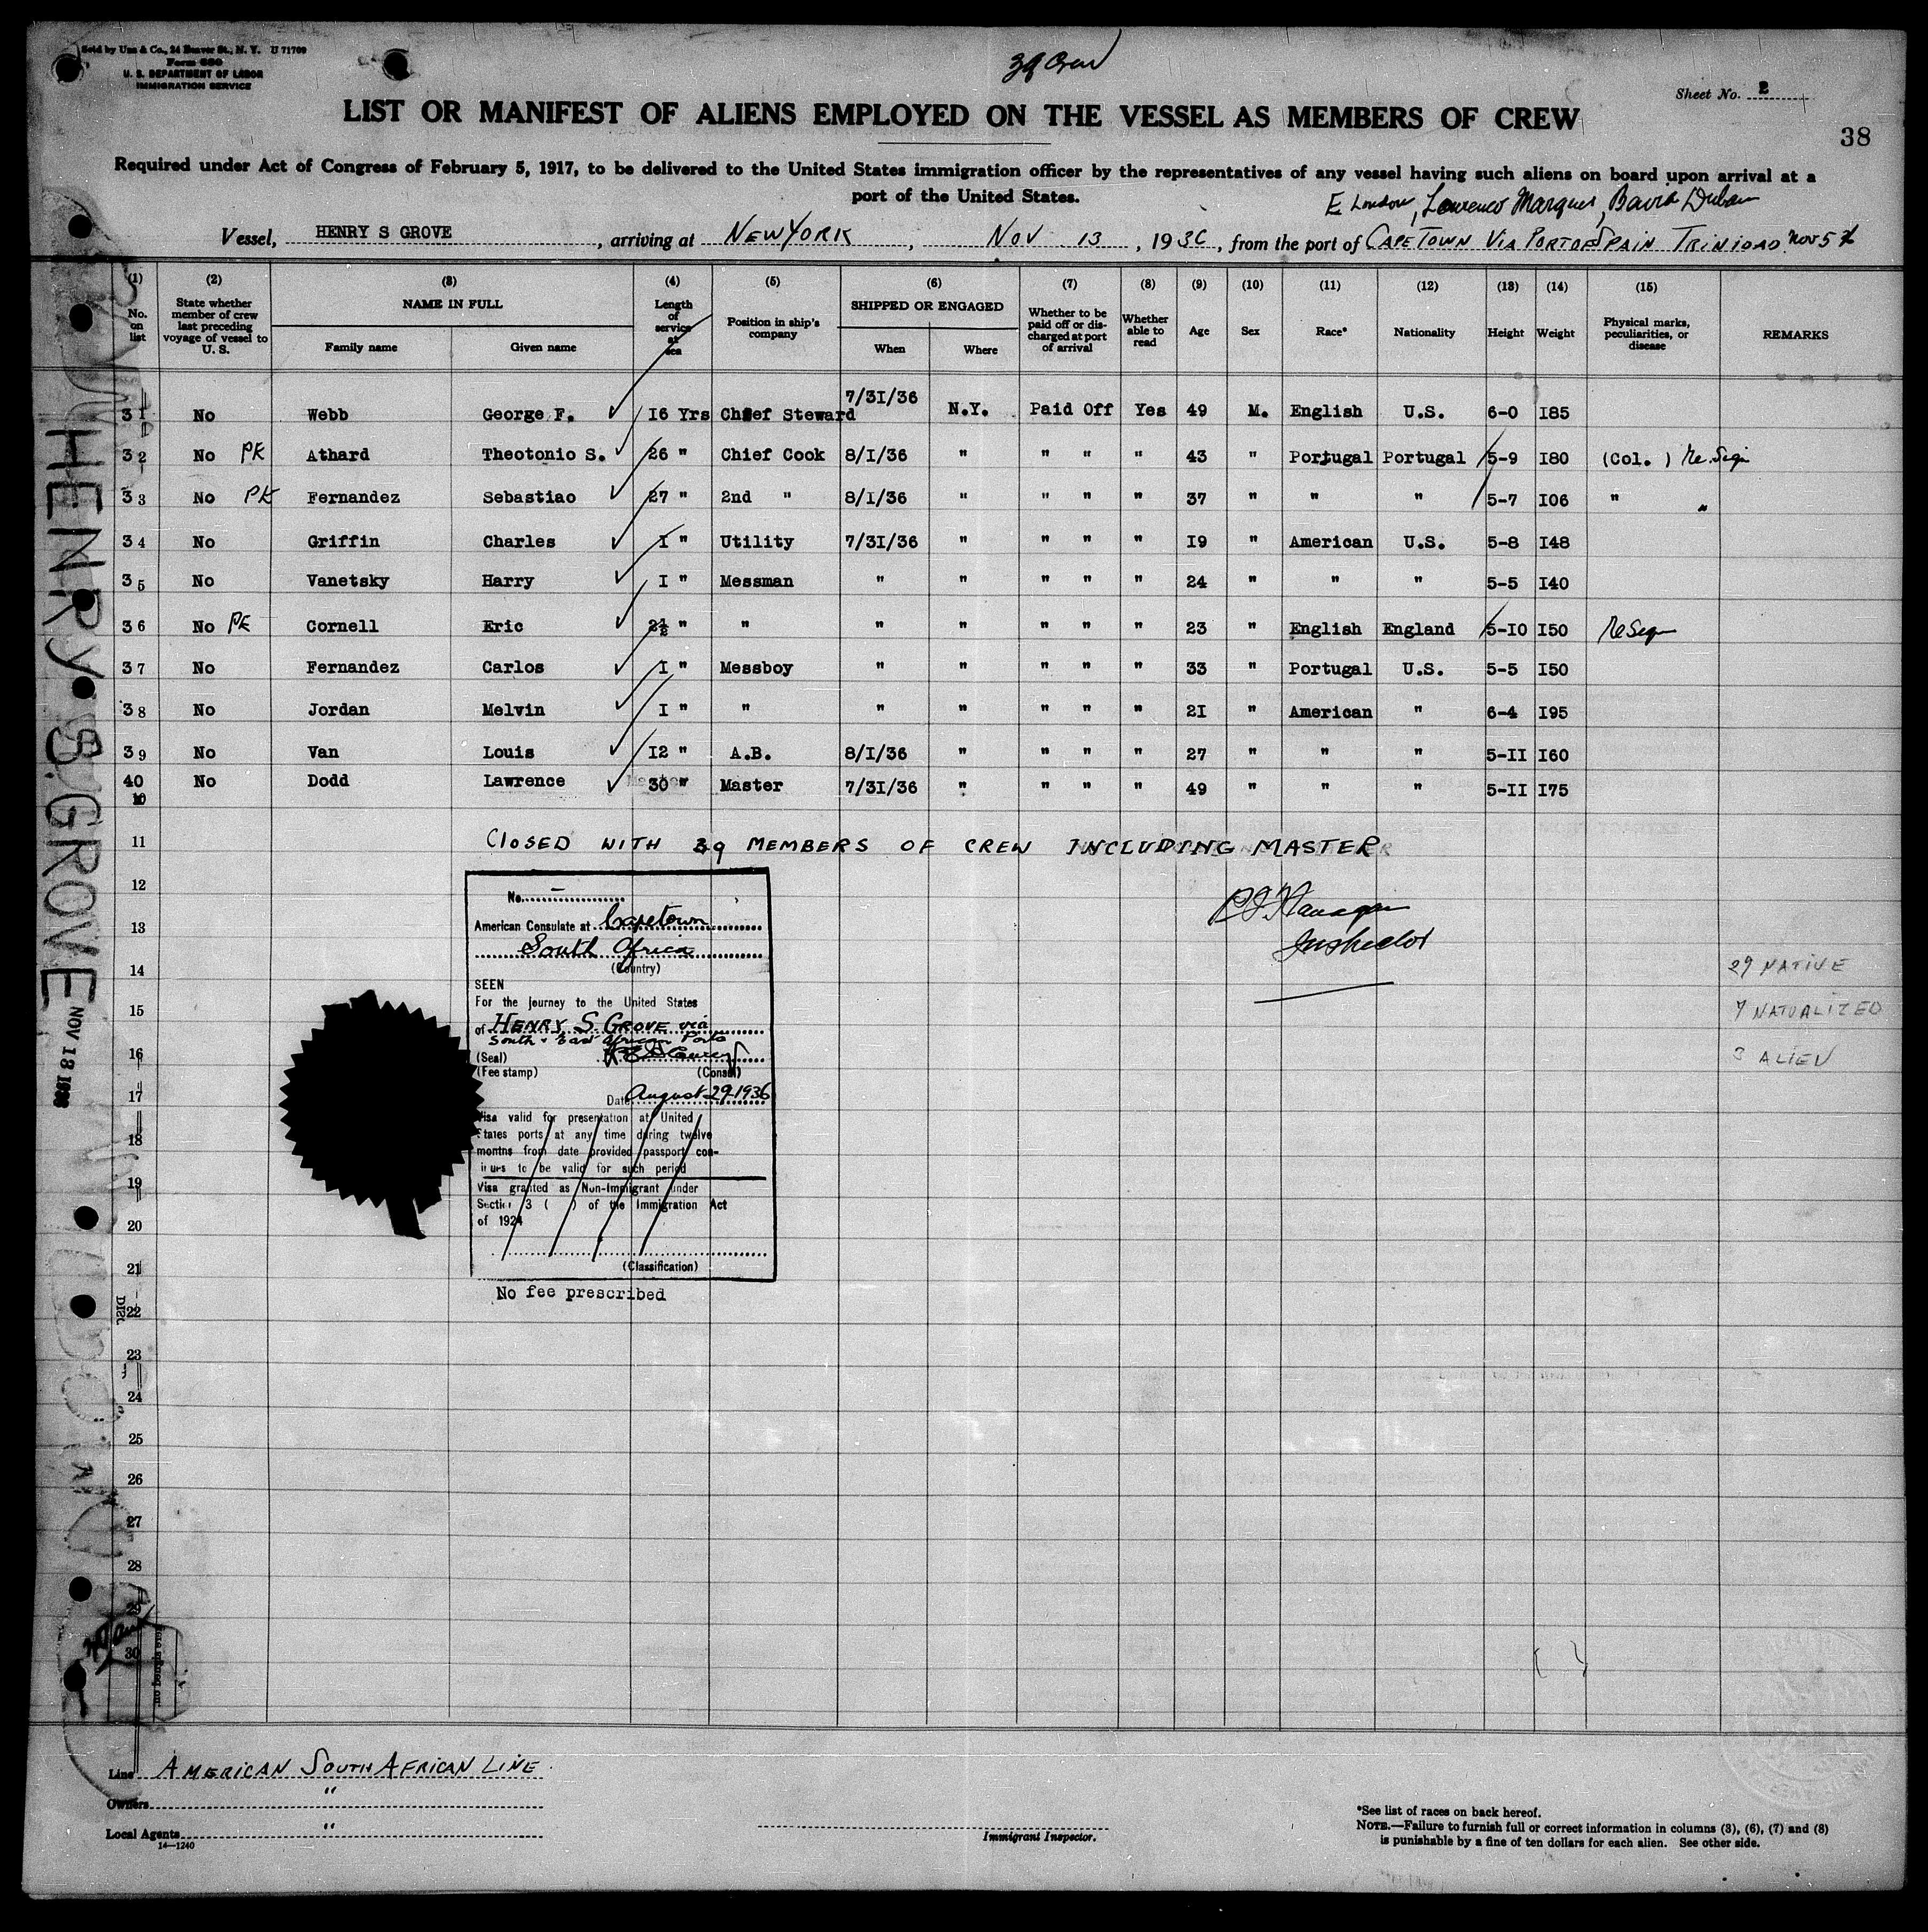 Sold by Unz & Co., 24 Beaver St., N. Y. U 71709
Form 680
U. S. DEPARTMENT OF LABOR
IMMIGRATION SERVICE
39 Crew
Sheet No. 2
LIST OR MANIFEST OF ALIENS EMPLOYED ON THE VESSEL AS MEMBERS OF CREW
38
Required under Act of Congress of February 5, 1917, to be delivered to the United States immigration officer by the representatives of any vessel having such aliens on board upon arrival at a
port of the United States.
E London, Lourenco Marques,
Vessel, HENRY S GROVE, arriving at NEW YORK, NOV 13, 1936, from the port of CAPETOWN VIA PORT OF SPAIN TRINIDAD Nov 5
(1) (2) (3) (4) (5) (6) (7) (8) (9) (10) (11) (12) (13) (14) (15)
No. on list State whether member of crew last preceding voyage of vessel to U. S. NAME IN FULL Family name Given name Length of service at sea Position in ship's company SHIPPED OR ENGAGED When Where Whether to be paid off or discharged at port of arrival Whether able to read Age Sex Race* Nationality Height Weight Physical marks, peculiarities, or disease REMARKS
31 No Webb George F. 16 Yrs Chief Steward 7/31/36 N.Y. Paid Off Yes 49 M. English U.S. 6-0 185
32 No PK Athard Theotonio S. 26 " Chief Cook 8/1/36 " " " " 43 " Portugal Portugal 5-9 180 (Col.) Re. Sign
33 No PK Fernandez Sebastiao 27 " 2nd " 8/1/36 " " " " 37 " " " 5-7 106 " "
34 No Griffin Charles 1 " Utility 7/31/36 " " " " 19 " American U.S. 5-8 148
35 No Vanetsky Harry 1 " Messman " " " " " 24 " " " 5-5 140
36 No PK Cornell Eric 2½ " " " " " " " 23 " English England 5-10 150 Re Sign
37 No Fernandez Carlos 1 " Messboy " " " " " 33 " Portugal U.S. 5-5 150
38 No Jordan Melvin 1 " " " " " " " 21 " American " 6-4 195
39 No Van Louis 12 " A.B. 8/1/36 " " " " 27 " " " 5-11 160
40 No Dodd Lawrence 30 " Master 7/31/36 " " " " 49 " " " 5-11 175
10
11 CLOSED WITH 39 MEMBERS OF CREW INCLUDING MASTER
12
13
14
15
16
17
18
19
20
21
22
23
24
25
26
27
28
29
30
Inspector
29 NATIVE
7 NATUALIZED
3 ALIEN
No.
American Consulate at Capetown
South Africa
(Country)
SEEN
For the journey to the United States
of HENRY S. GROVE via
South & East African Ports
(Seal)
(Fee stamp) (Consul)
Date August 29-1936
Visa valid for presentation at United
States ports at any time during twelve
months from date provided passport con-
tinues to be valid for such period
Visa granted as Non-Immigrant under
Section 3 ( ) of the Immigration Act
of 1924
(Classification)
No fee prescribed
HENRY S. GROVE
NOV 13 1936
Line AMERICAN SOUTH AFRICAN LINE
Owners "
Local Agents "
14—1240
Immigrant Inspector.
*See list of races on back hereof.
NOTE.—Failure to furnish full or correct information in columns (3), (6), (7) and (8)
is punishable by a fine of ten dollars for each alien. See other side.